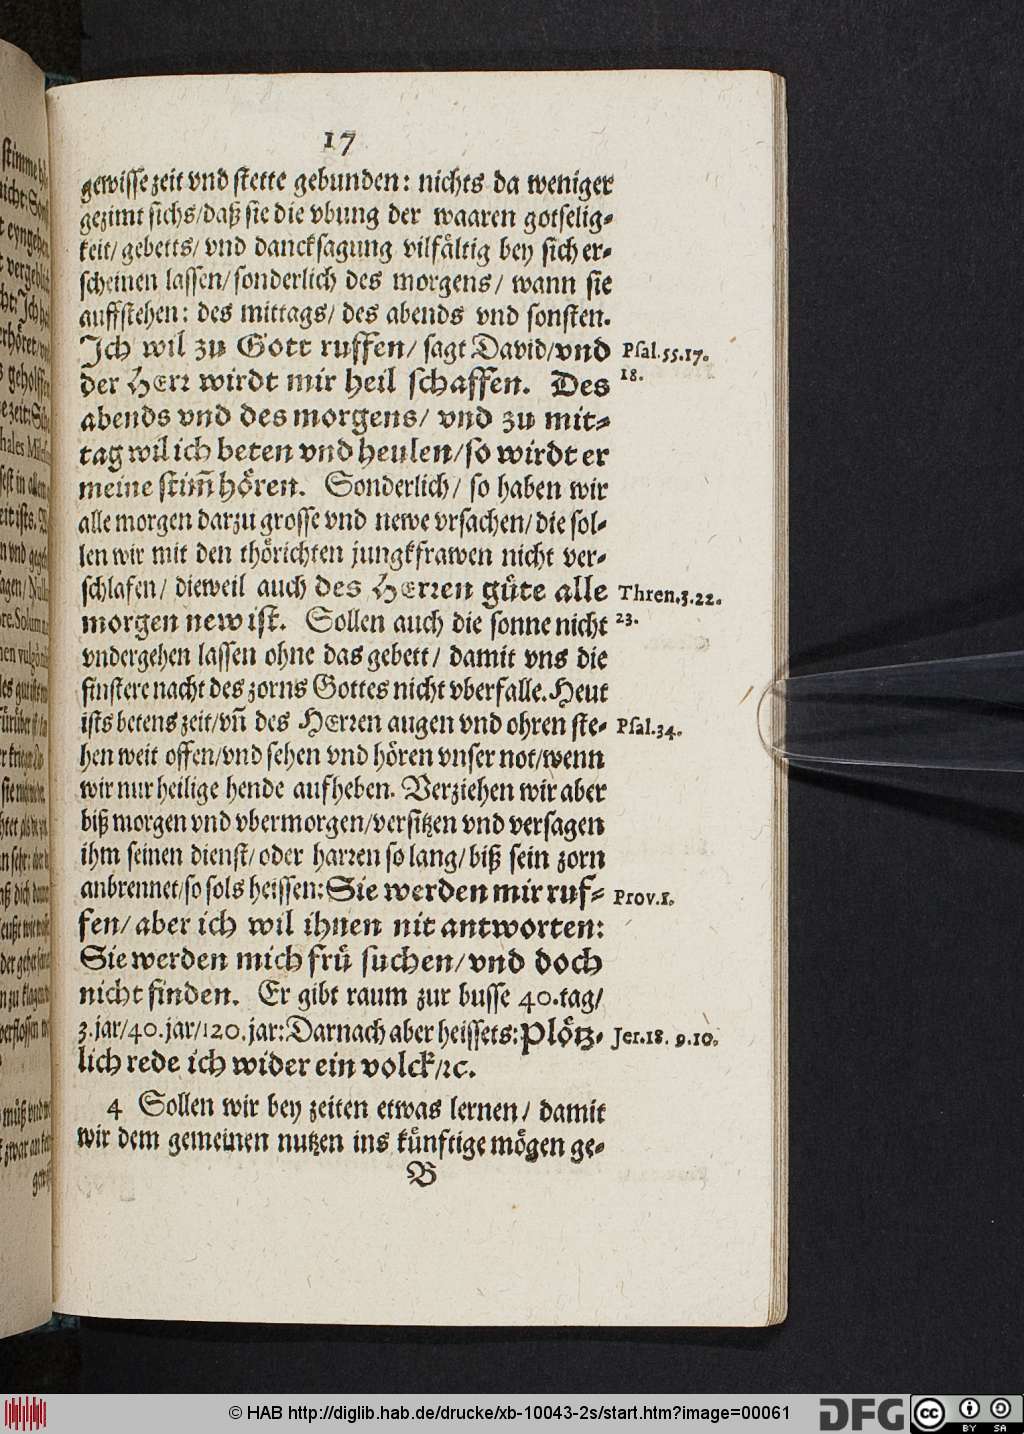 17
gewisse zeit vnd stette gebunden: nichts da weniger
gezimt sichs/daß sie die vbung der waaren gotselig-
keit/ gebetts/ vnd dancksagung vilfältig bey sich er-
scheinen lassen/ sonderlich des morgens/ wann sie
auffstehen: des mittags/ des abends vnd sonsten.
Ich wil zu Gott ruffen/ sagt David/vnd Psal.55.17.
der HErr wirdt mir heil schaffen. Des 18.
abends vnd des morgens/ vnd zu mit-
tag wil ich beten vnd heulen/so wirdt er
meine stim̃ hören. Sonderlich/ so haben wir
alle morgen darzu grosse vnd newe vrsachen/ die sol-
len wir mit den thörichten jungkfrawen nicht ver-
schlafen/ dieweil auch des HErren güte alle Thren.3.22.
morgen new ist. Sollen auch die sonne nicht 23.
vndergehen lassen ohne das gebett/ damit vns die
finstere nacht des zorns Gottes nicht vberfalle. Heut
ists betens zeit/vñ des HErren augen vnd ohren ste- Psal.34.
hen weit offen/vnd sehen vnd hören vnser not/wenn
wir nur heilige hende aufheben. Verziehen wir aber
biß morgen vnd vbermorgen/versitzen vnd versagen
ihm seinen dienst/oder harren so lang/ biß sein zorn
anbrennet/so sols heissen: Sie werden mir ruf- Prov.1.
fen/ aber ich wil ihnen nit antworten:
Sie werden mich frü suchen/vnd doch
nicht finden. Er gibt raum zur busse 40.tag/
3.jar/40.jar/120.jar: Darnach aber heissets: Plötz- Jer.18. 9.10.
lich rede ich wider ein volck/ꝛc.
4 Sollen wir bey zeiten etwas lernen/ damit
wir dem gemeinen nutzen ins künftige mögen ge-
B
© HAB http://diglib.hab.de/drucke/xb-10043-2s/start.htm?image=00061
DFG
cc BY SA